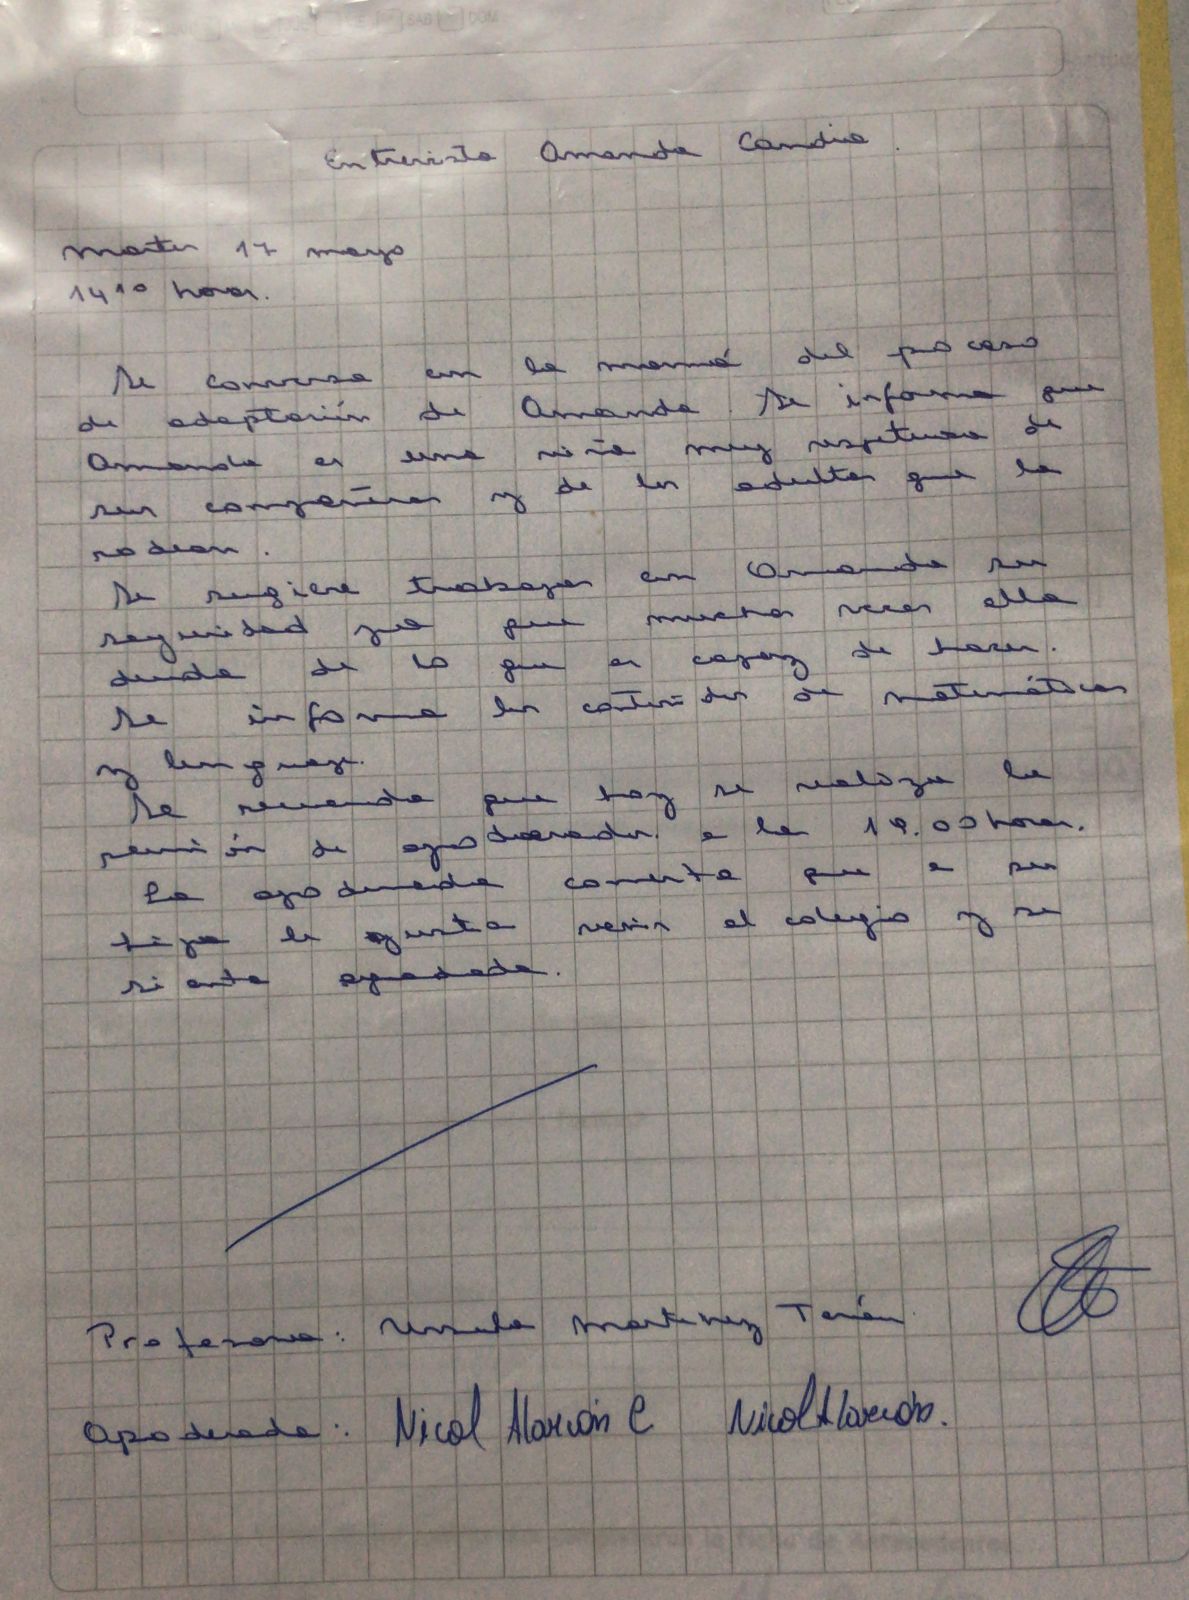 Entrevista Amanda Candia.
Martes 17 mayo
14:10 horas.
Se conversa con la mamá del proceso
de adaptación de Amanda. Se informa que
Amanda es una niña muy respetuosa de
sus compañeros y de los adultos que la
rodean.
Se sugiere trabajar con Amanda su
seguridad ya que muchas veces ella
duda de lo que es capaz de hacer.
Se informa los contenidos de matemáticas
y lenguaje.
Se recuerda que hoy se realiza la
reunión de apoderados a las 19.00 horas.
La apoderada comenta que a su
hija le gusta venir al colegio y se
siente agradada.
Profesora: Ursula Martinez Terán.
Apoderada: Nicol Alarcón C Nicol Alarcón.